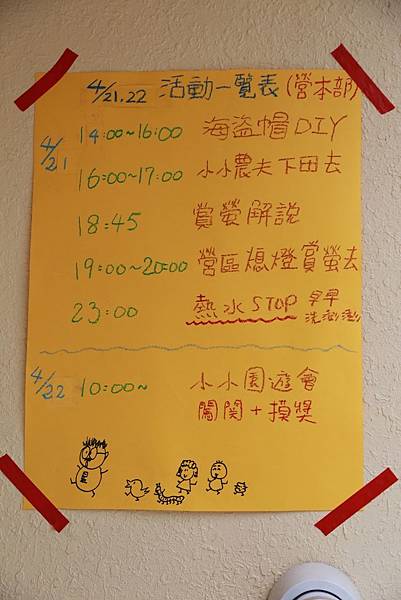 4/21.22 活動一覽表(營本部)
4/21 14:00~16:00 海盜帽DIY
16:00~17:00 小小農夫下田去
18:45 賞螢解說
19:00~20:00 營區熄燈賞螢去
23:00 熱水STOP 早早洗澎澎
4/22 10:00~ 小小園遊會
闖関+摸獎